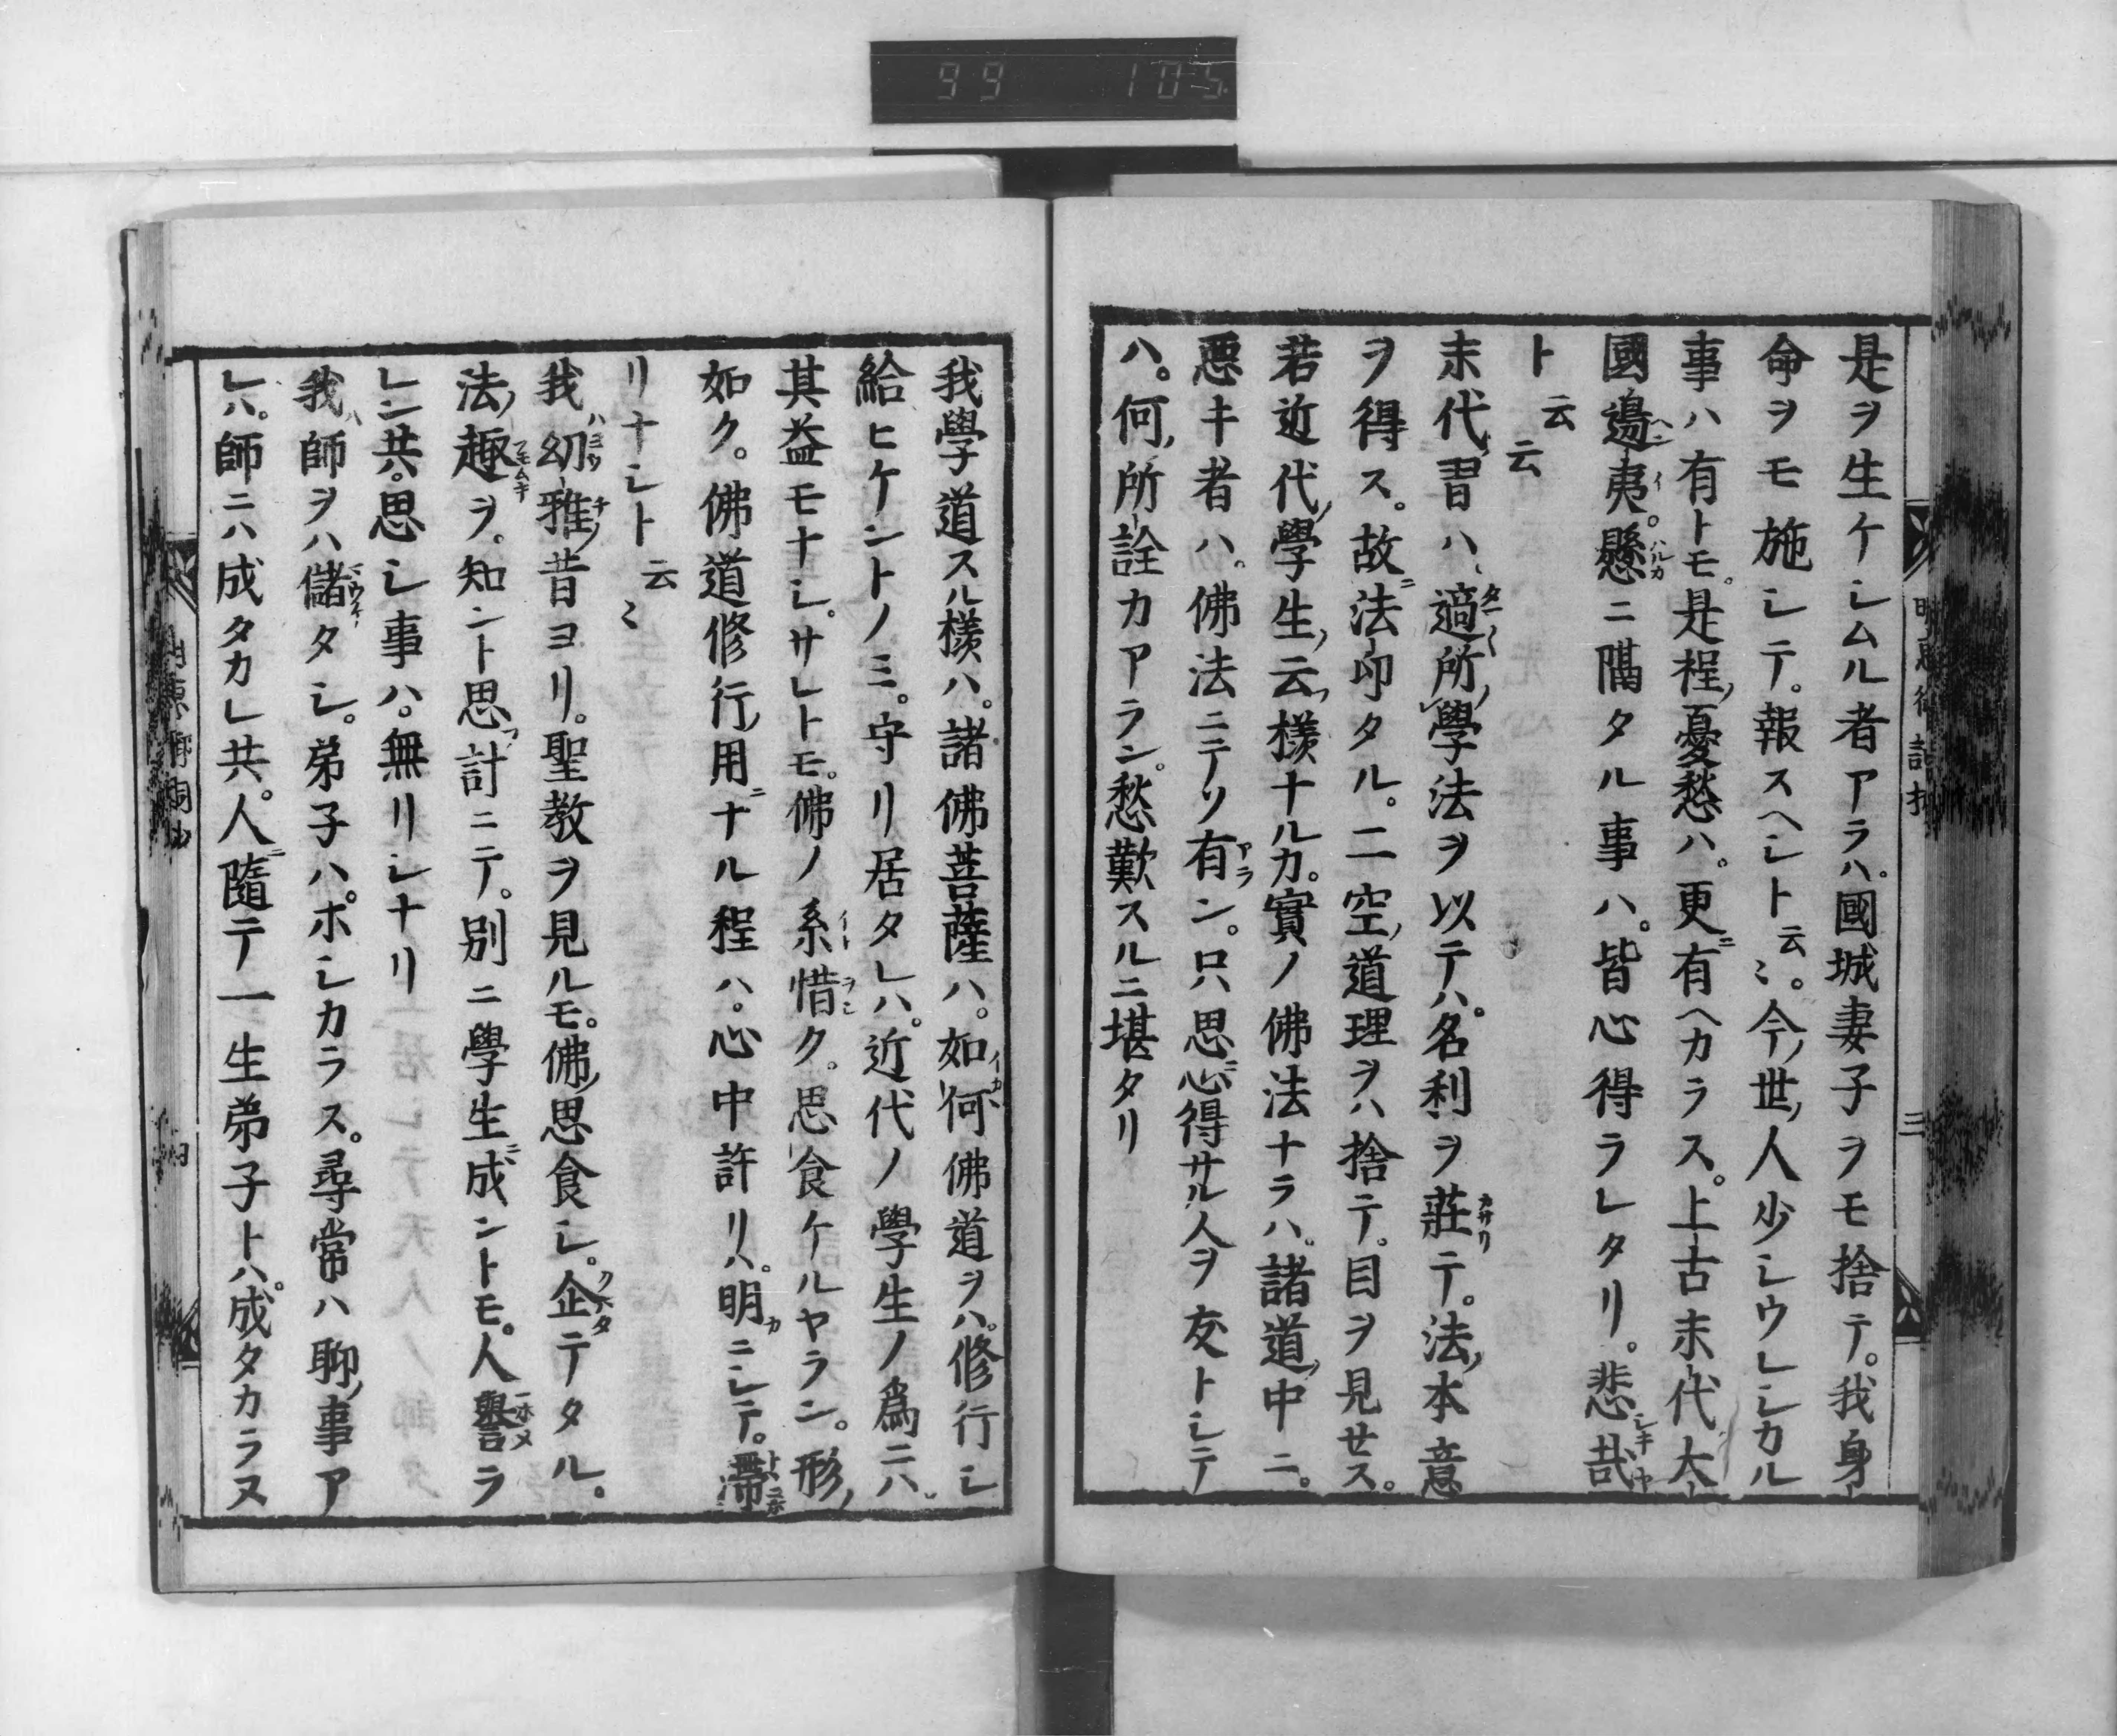 99 105
是ヲ生ケシムル者アラハ。國城妻子ヲモ捨テ。我身
命ヲモ施シテ。報スヘシト云〻。今ノ世ノ人少シウレシカル
事ハ有トモ。是程ノ憂愁ハ。更ニ有ヘカラス。上古末代大
國邊夷。懸ニ隔タル事ハ。皆心得ラレタリ。悲哉
ト云云
末代ノ習ハ、適所ノ學法ヲ以テハ。名利ヲ莊テ。法ノ本意
ヲ得ス。故ニ法印タル。二空ノ道理ヲハ捨テ。目ヲ見セス。
若近代ノ學生ノ云ノ樣ナルカ。實ノ佛法ナラハ。諸道ノ中ニ。
惡キ者ハ。佛法ニテソ有ン。只思心得サル人ヲ友トシテ
ハ。何ノ所詮カアラン。愁歎スルニ堪タリ
我學道スル樣ハ。諸佛菩薩ハ。如何佛道ヲハ。修行シ
給ヒケントノミ。守リ居タレハ。近代ノ學生ノ爲ニハ
其益モナシ。サレトモ。佛ノ糸惜ク。思食ケルヤラン。形ノ
如ク。佛道修行ノ用ニナル程ハ。心中許リハ。明ニシテ。滯
リナシト云〻
我ハ幼稚ノ昔ヨリ。聖教ヲ見ルモ。佛ノ思食シ。企テタル。
法ノ趣ヲ。知ント思フ計ニテ。別ニ學生ニ成ントモ。人ニ譽ラ
レン共。思シ事ハ。無リシナリ
我ハ師ヲハ儲タシ。弟子ハ。ホシカラス。尋常ハ聊ノ事ア
レハ。師ニハ成タカレ共。人ニ隨テ一生弟子トハ。成タカラヌ